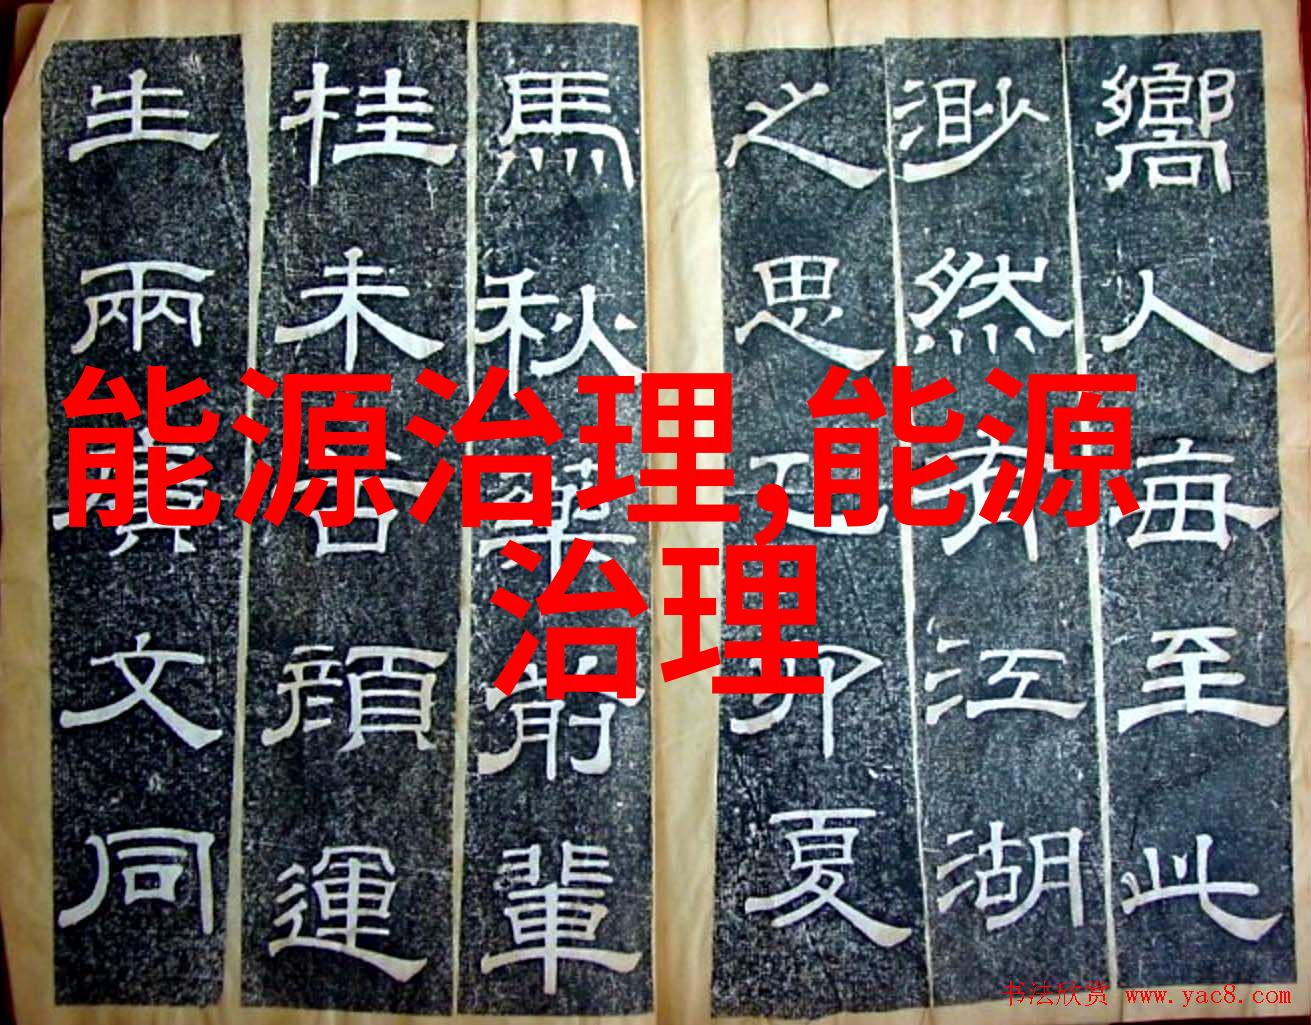 能源治理,能源
治理
嚮人每至此
渺然有江湖
之思卬夏
馬秋藥前輩
桂未谷顏運
生兩廣文同
书法欣赏 www.yac8.com